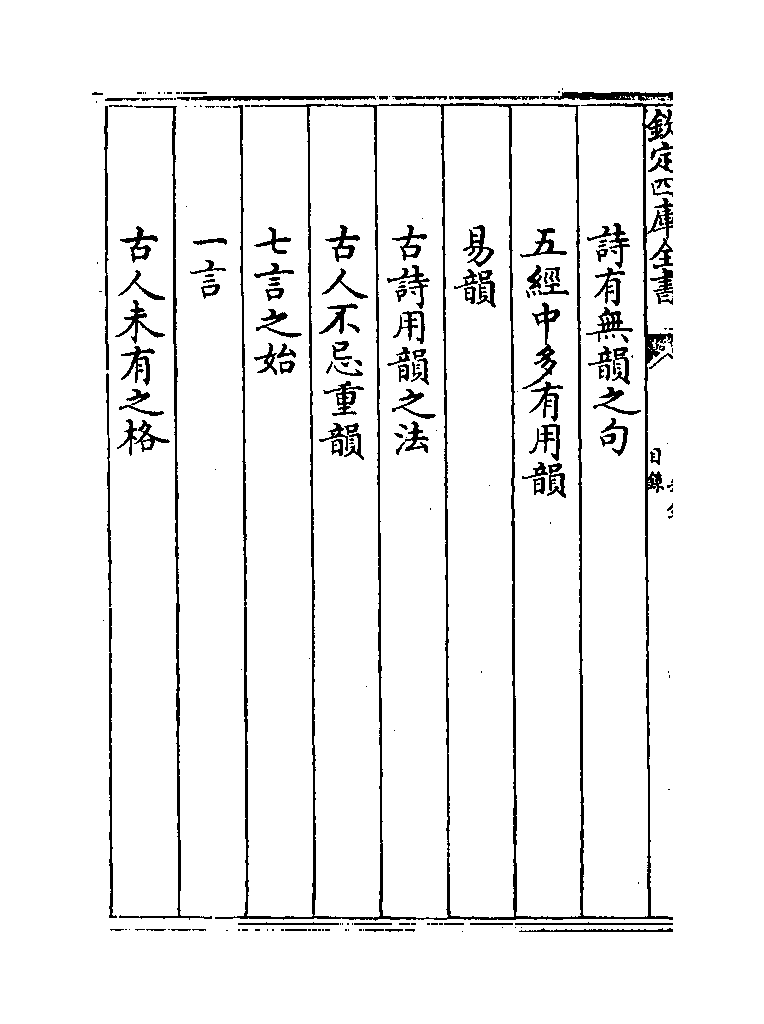 欽定四庫全書
目錄
詩有無韻之句
五經中多有用韻
易韻
古詩用韻之法
古人不忌重韻
七言之始
一言
古人未有之格